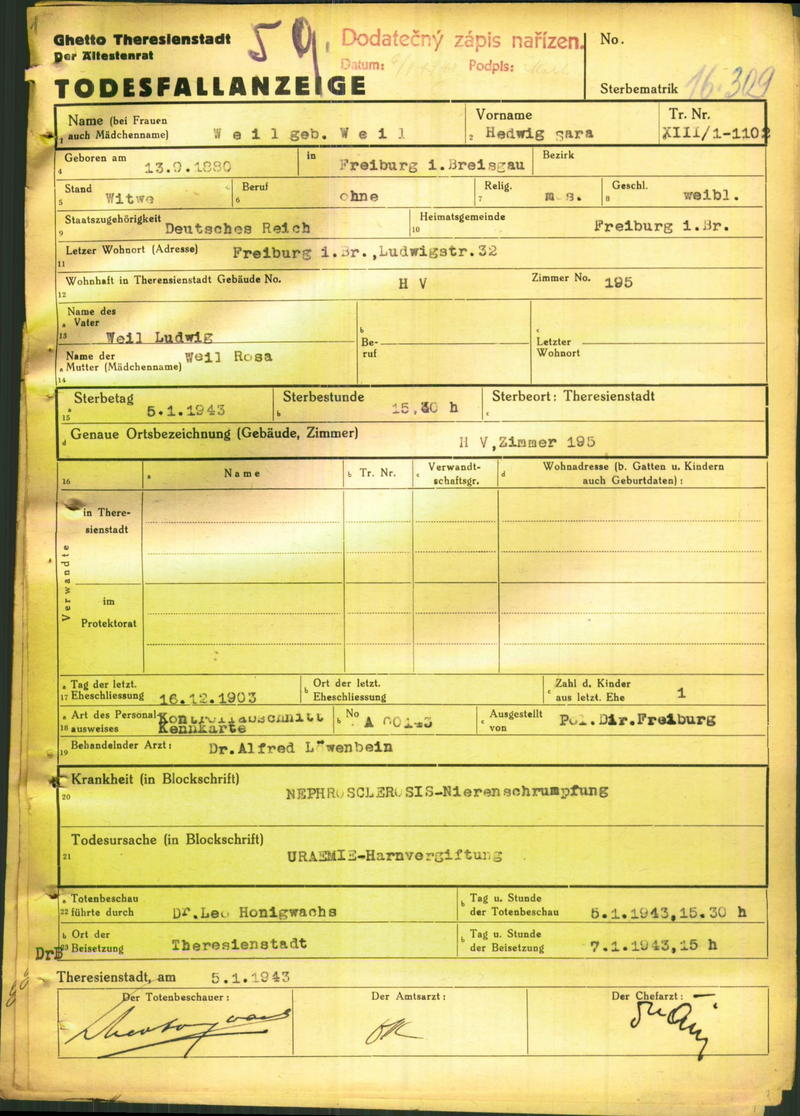 Ghetto Theresienstadt
Der Ältestenrat
TODESFALLANZEIGE
59.
Dodatečný zápis nařízen.
Datum: Podpis:
No.
Sterbematrik 16.309
Name (bei Frauen
1 auch Mädchenname) Weil geb. Weil
Vorname
2 Hedwig sara
Tr. Nr.
XIII/1-110
Geboren am
4 13.9.1880
in Freiburg i.Breisgau
Bezirk
Stand
5 Witwe
Beruf
6 ohne
Relig.
7 m s.
Geschl.
8 weibl.
Staatszugehörigkeit
9 Deutsches Reich
Heimatsgemeinde
10 Freiburg i.Br.
Letzer Wohnort (Adresse) Freiburg i.Br.,Ludwigstr.32
11
Wohnhaft in Therensienstadt Gebäude No. H V Zimmer No. 195
12
Name des
a Vater
13 Weil Ludwig
b
Be-
ruf
c
Letzter
Wohnort
Name der Weil Rosa
a Mutter (Mädchenname)
14
Sterbetag
a
15 5.1.1943
Sterbestunde
b 15,30 h
Sterbeort: Theresienstadt
c
Genaue Ortsbezeichnung (Gebäude, Zimmer)
d H V,Zimmer 195
16 a Name
b Tr. Nr.
c Verwandt-
schaftsgr.
d Wohnadresse (b. Gatten u. Kindern
auch Geburtdaten):
Verwandte
in There-
sienstadt
im
Protektorat
a Tag der letzt.
17 Eheschliessung 16.12.1903
b Ort der letzt.
Eheschliessung
c Zahl d. Kinder
aus letzt. Ehe 1
a Art des Personal-
18 ausweises Kennkarte
b No A 00143
c Ausgestellt
von Pol.Dir.Freiburg
19 Behandelnder Arzt: Dr.Alfred Löwenbein
Krankheit (in Blockschrift)
20 NEPHROSCLEROSIS-Nierenschrumpfung
Todesursache (in Blockschrift)
21 URAEMIE-Harnvergiftung
a Totenbeschau
22 führte durch Dr.Leo Honigwachs
b Tag u. Stunde
der Totenbeschau 5.1.1943,15.30 h
b Ort der
23 Beisetzung Theresienstadt
b Tag u. Stunde
der Beisetzung 7.1.1943,15 h
Theresienstadt, am 5.1.1943
Der Totenbeschauer:
Der Amtsarzt:
Der Chefarzt: